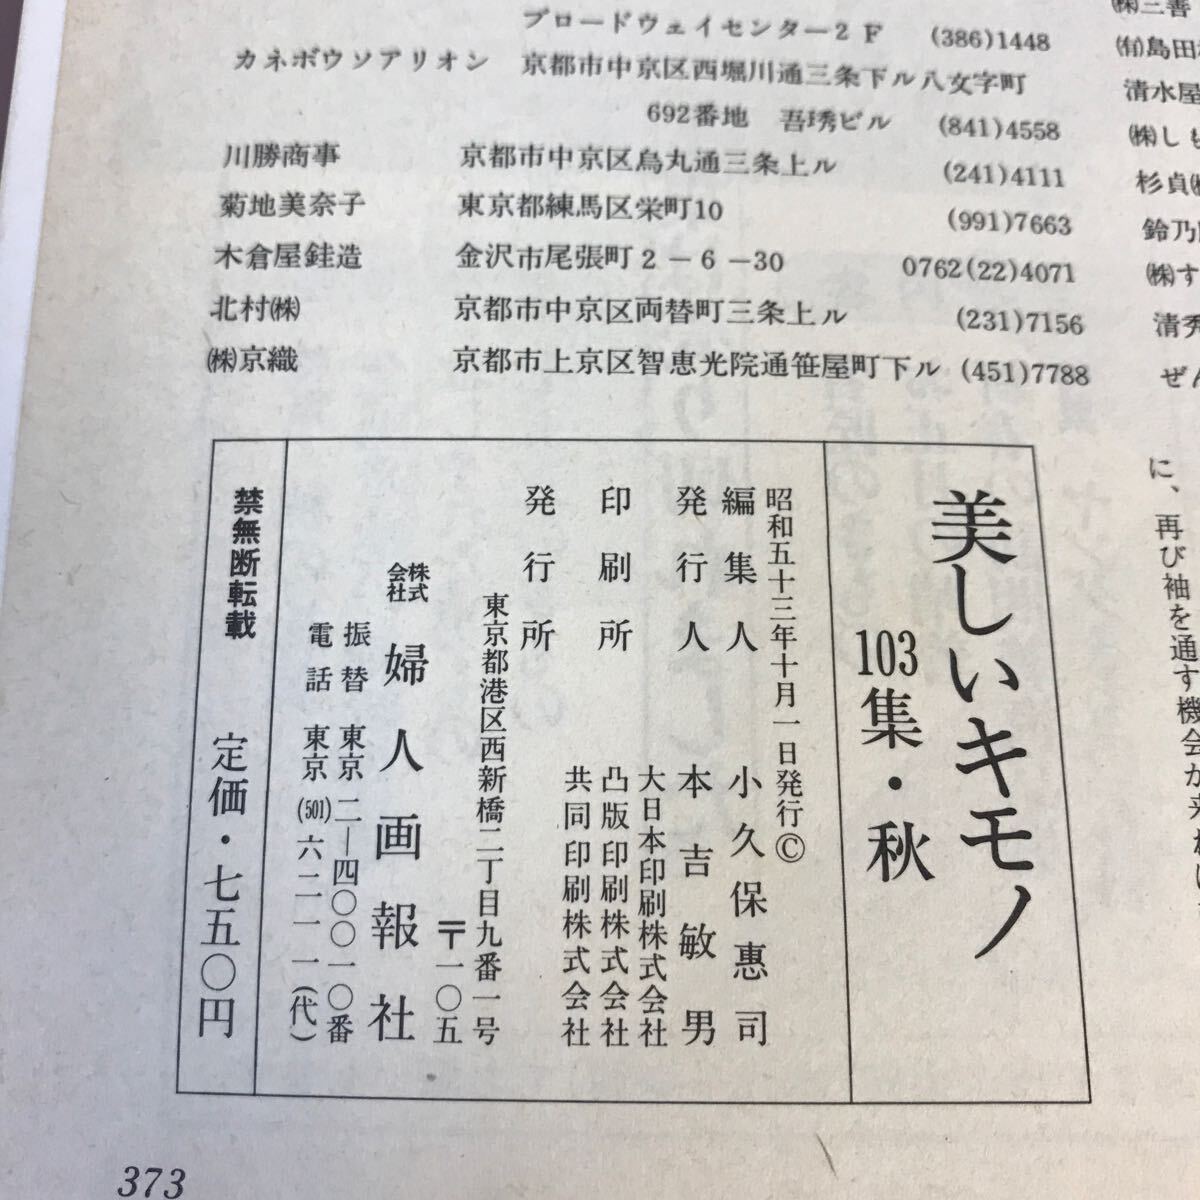 ブロードウェイセンター2F (386)1448
カネボウソアリオン 京都市中京区西堀川通三条下ル八文字町
692番地 吾琇ビル (841)4558
川勝商事 京都市中京区烏丸通三条上ル (241)4111
菊地美奈子 東京都練馬区栄町10 (991)7663
木倉屋銈造 金沢市尾張町2-6-30 0762(22)4071
北村㈱ 京都市中京区両替町三条上ル (231)7156
㈱京織 京都市上京区智恵光院通笹屋町下ル (451)7788
㈱三善
㈲島田
清水屋
㈱しも
杉貞㈱
鈴乃
㈱す
清秀
ぜん
に、再び袖を通す機会が来
美しいキモノ
103集・秋
昭和五十三年十月一日発行©
編集人 小久保惠司
発行人 本吉敏男
印刷所 大日本印刷株式会社
凸版印刷株式会社
共同印刷株式会社
発行所
東京都港区西新橋二丁目九番一号
〒一〇五
株式会社 婦人画報社
振替 東京 二―四〇〇一〇番
電話 東京(501)六二一一(代)
禁無断転載 定価・七五〇円
373